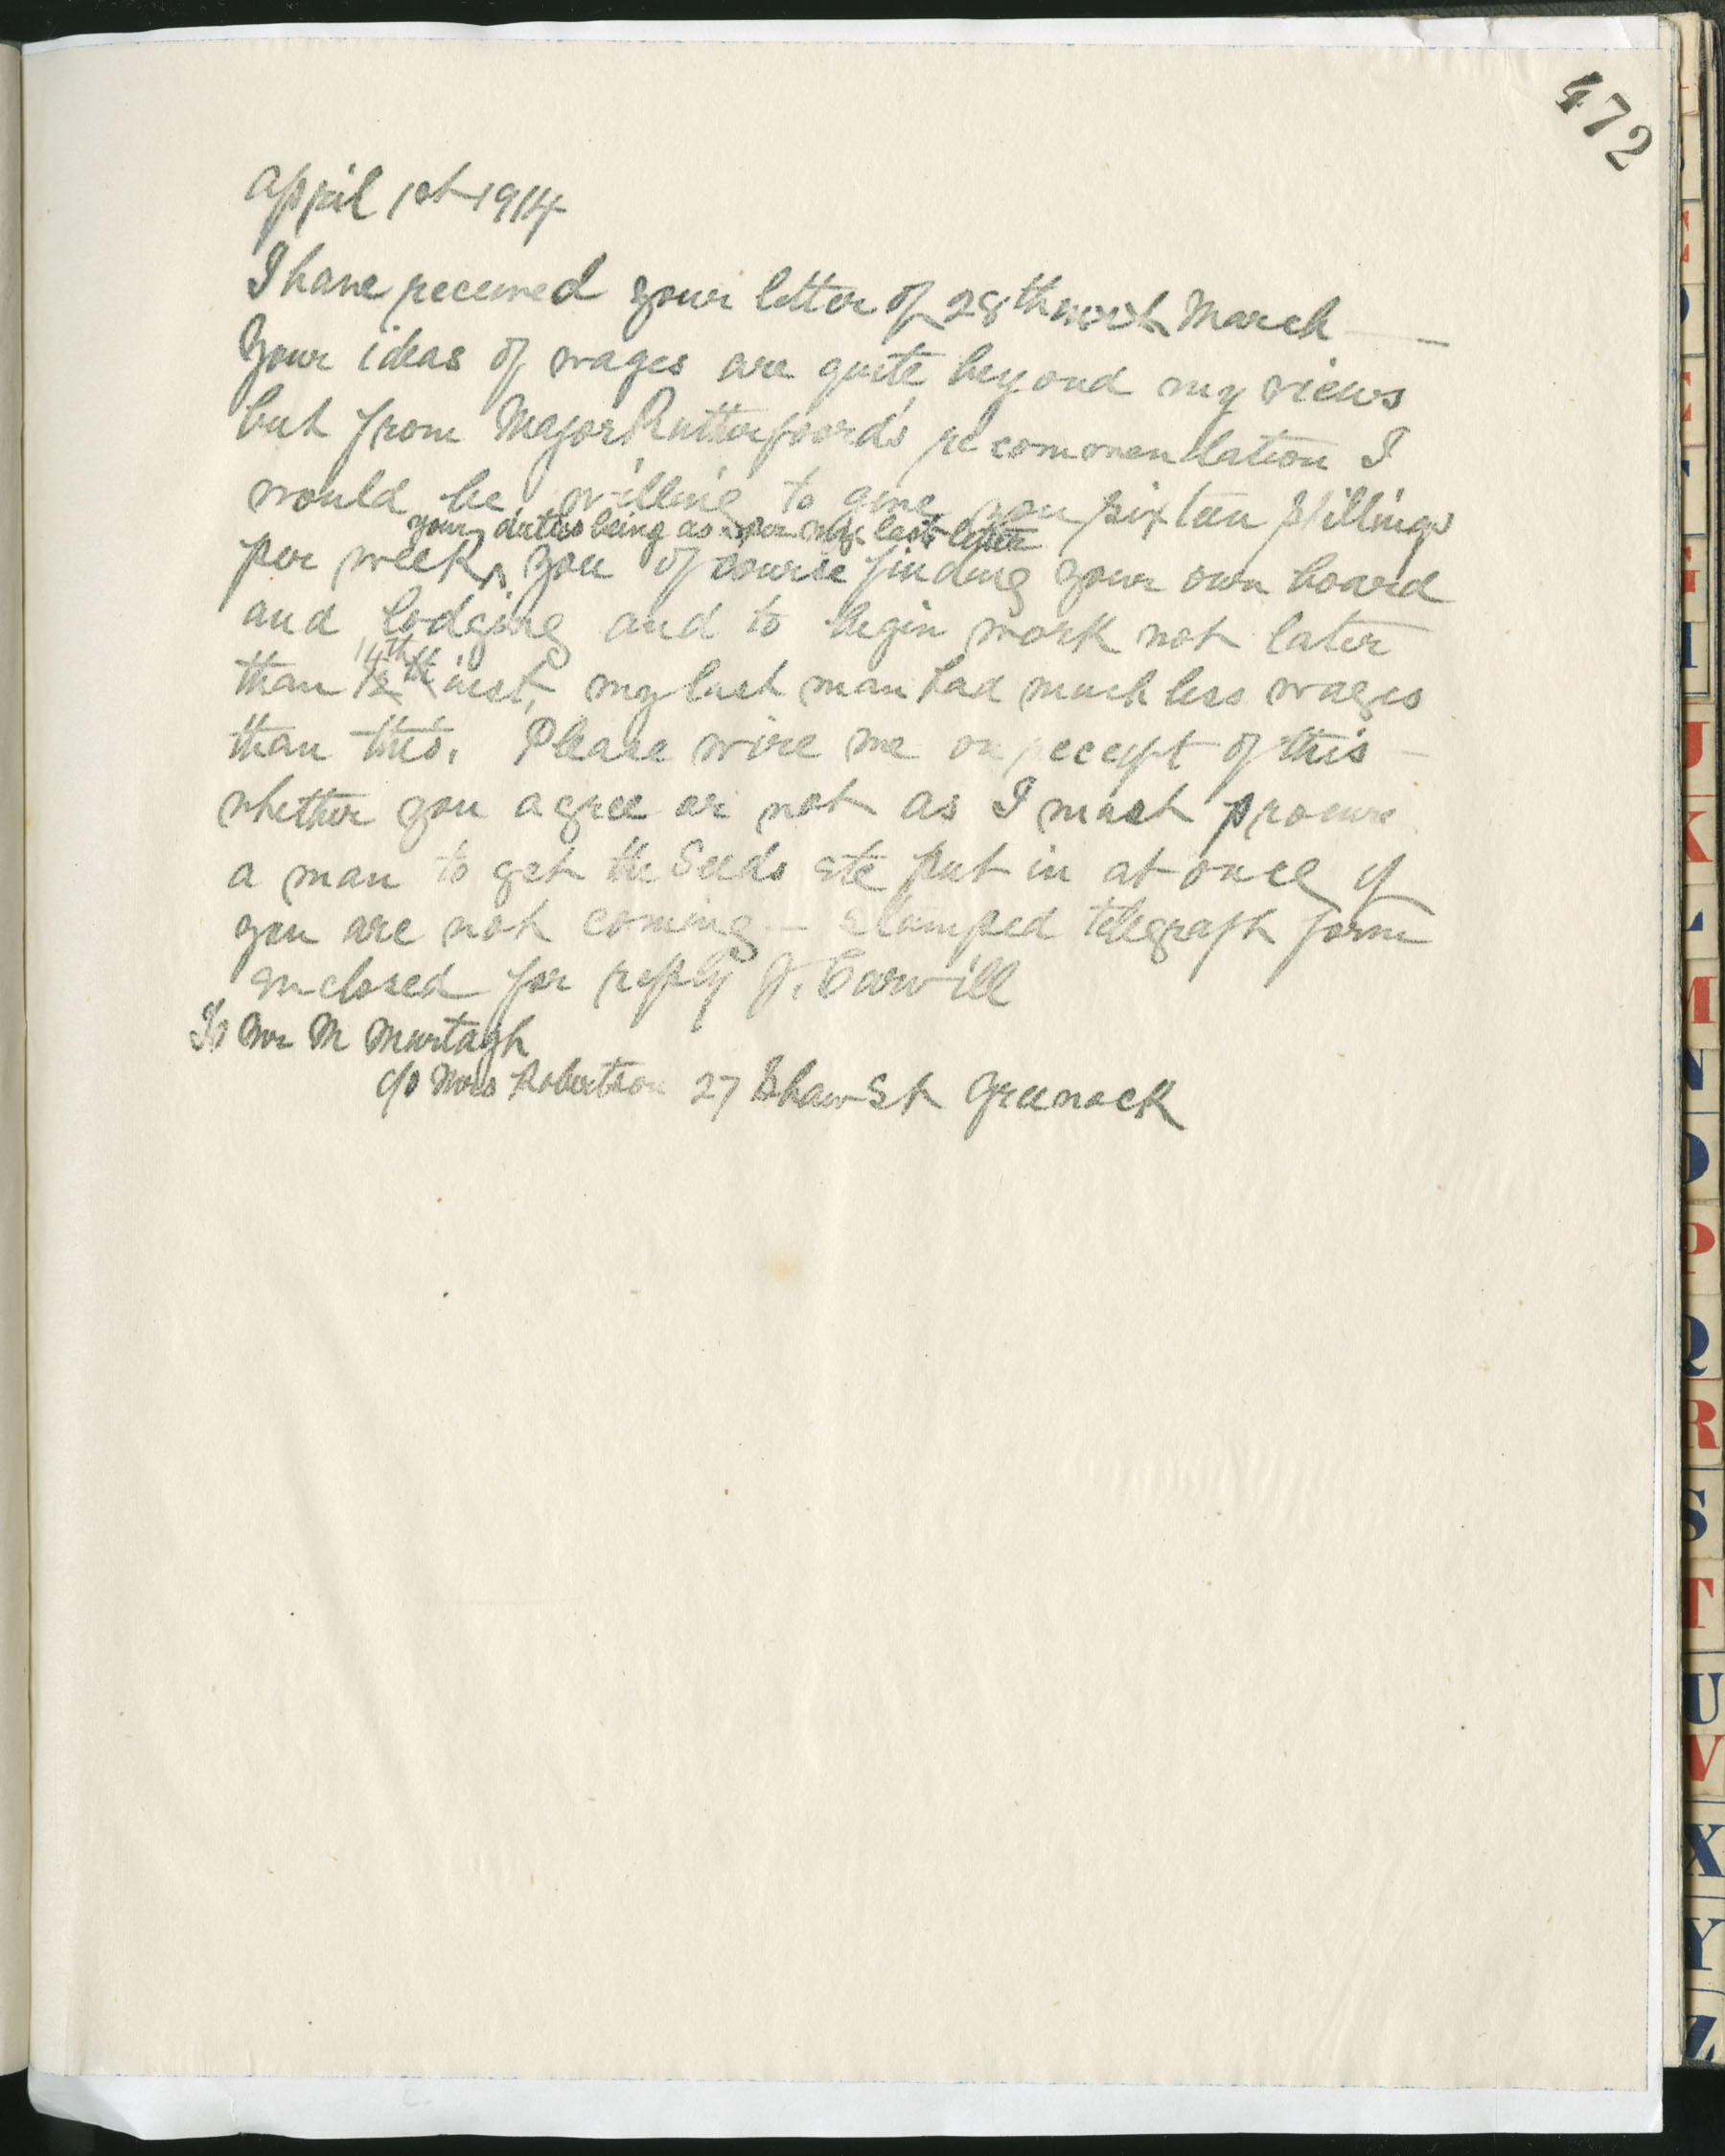 472
April 1st 1914
I have received your letter of 28th March —
Your ideas of wages are quite beyond my views
but from Major Rutterfoord's recommendation I
would be willing to give you sixteen shillings
your duties being as per my last letter
per week ^ you of course finding your own board
and lodging and to begin work not later
14th
than 12th inst, my last man had much less wages
than this. Please wire me on receipt of this —
whether you agree or not as I must procure
a man to get the Seeds etc put in at once if
you are not coming — stamped telegraph form
enclosed for reply J. Carvill
To Mr M Murtagh
c/o Mrs Robertson 27 Shaw St Greenock
J
K
L
M
N
O
P
Q
R
S
T
U
V
X
Y
Z